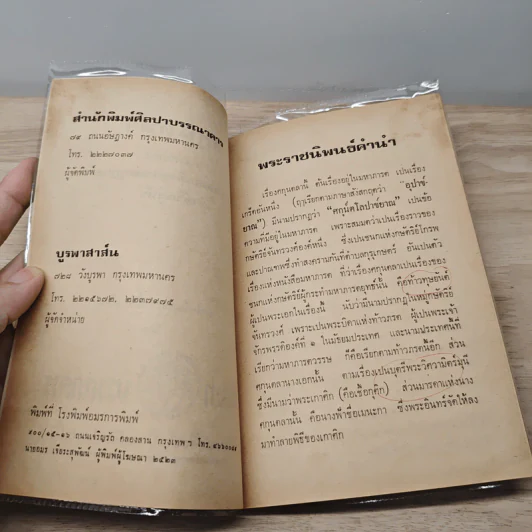 สำนักพิมพ์ศิลปาบรรณาคาร
๗๙ ถนนอัษฎางค์ กรุงเทพมหานคร
โทร. ๒๒๒๗๐๓๗
ผู้จัดพิมพ์
บูรพาสาส์น
๗๒๘ วังบูรพา กรุงเทพมหานคร
โทร. ๒๒๑๕๖๗๒, ๒๒๓๗๙๗๕
ผู้จัดจำหน่าย
พิมพ์ที่ โรงพิมพ์อมรการพิมพ์
ถนนเจริญรัถ คลองสาน กรุงเทพ ฯ โทร.
นายอมร เจือระสุพัฒน์ ผู้พิมพ์ผู้โฆษณา ๒๕๒๓
พระราชนิพนธ์คำนำ
เรื่องศกุนตลานี้ ต้นเรื่องอยู่ในมหาภารต เป็นเรื่อง
เกร็ดอันหนึ่ง (ฤๅเรียกตามภาษาสังสกฤตว่า "อุปาข์-
ยาณ") มีนามปรากฏว่า "ศกุน์ตโลปาข์ยาณ" เป็นข้อ
ความที่มีอยู่ในมหาภารต เพราะสมมตว่าเป็นเรื่องราวของ
กษัตริย์จันทรวงศ์องค์หนึ่ง ซึ่งเป็นชนกแห่งกษัตริย์โกรพ
และปาณฑพซึ่งทำสงครามกันที่ตำบลกุรุเกษตร์ อันเป็นตัว
เรื่องแห่งหนังสือมหาภารต ที่ว่าเรื่องศกุนตลาเป็นเรื่องของ
ชนกแห่งกษัตริย์ผู้กระทำมหาภารตยุทธ์นั้น คือท้าวทุษยันต์
ผู้เป็นพระเอกในเรื่องนี้ นับว่ามีนามปรากฏในหมู่กษัตริย์
จันทรวงศ์ เพราะเป็นพระบิดาแห่งท้าวภรต ผู้เป็นพระเจ้า
จักรพรรดิองค์ที่ ๑ ในมัธยมประเทศ และนามประเทศนั้นที่
เรียกว่ามหาภารตวรรษ ก็คือเรียกตามท้าวภรตนี้เอง ส่วน
ศกุนตลานางเอกนั้น ตามเรื่องเป็นบุตรีพระวิศวามิตร์มุนี
ซึ่งมีนามว่าพระเกาศิก (คือเชื้อกุศิก) ส่วนมารดาแห่งนาง
ศกุนตลานั้น คือนางฟ้าชื่อเมนะกา ซึ่งพระอินทร์จัดให้ลง
มาทำลายพิธีของเกาศิก